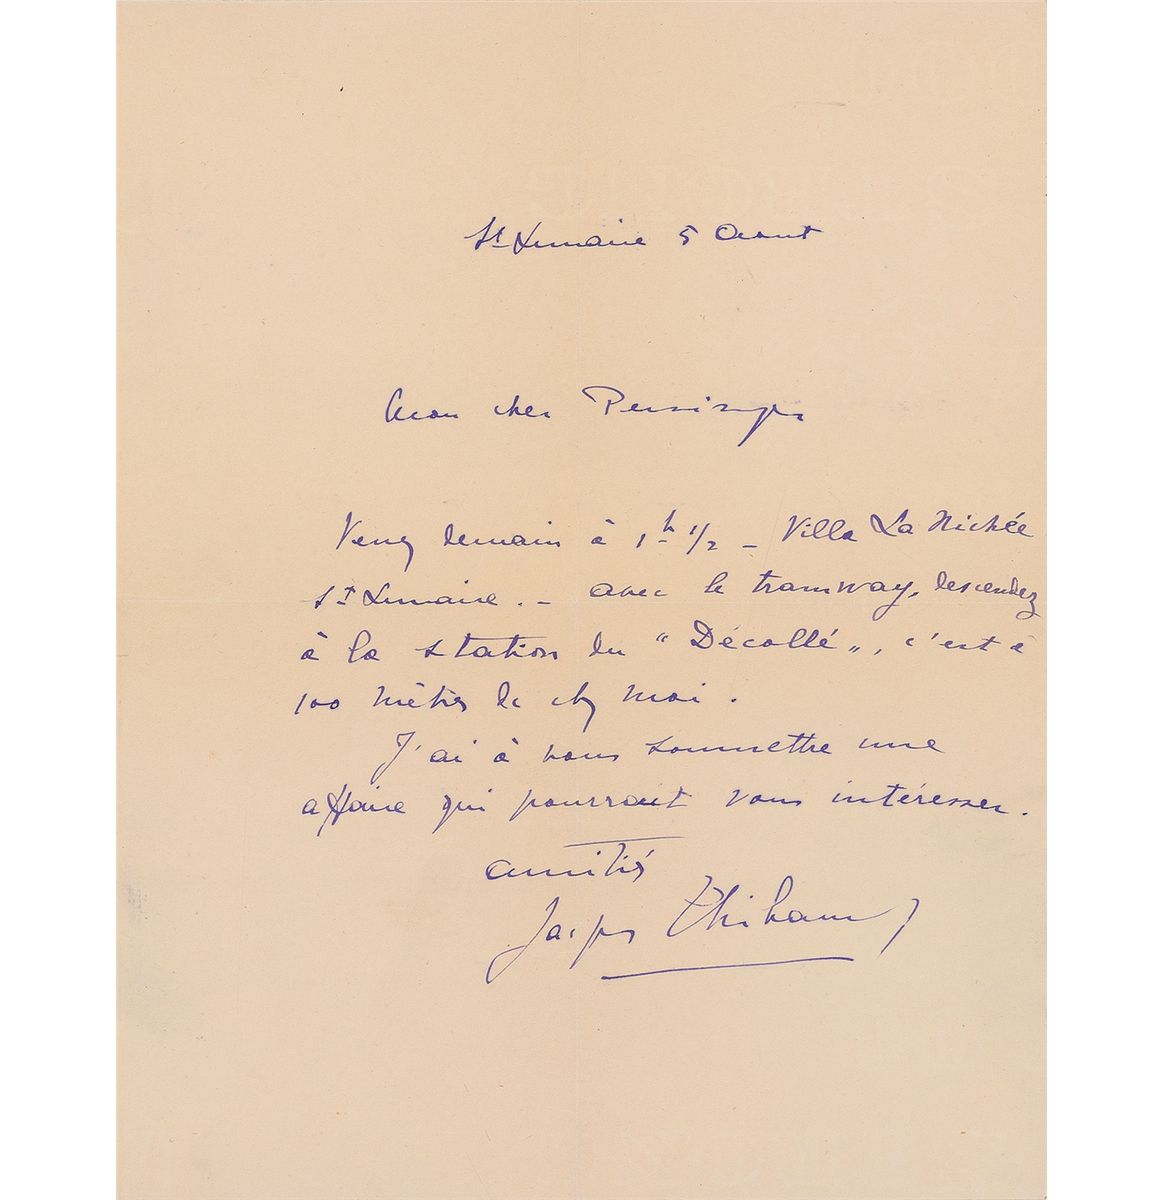 St Lunaire 5 Aout
Mon cher Persinger
Venez demain à 1h 1/2 - Villa La Nichée
St Lunaire. - avec le tramway, descendez
à la station du "Décollé", c'est à
100 mètres de chez moi.
J'ai à vous soumettre une
affaire qui pourrait vous intéresser.
amitiés
Jacques Thibaud